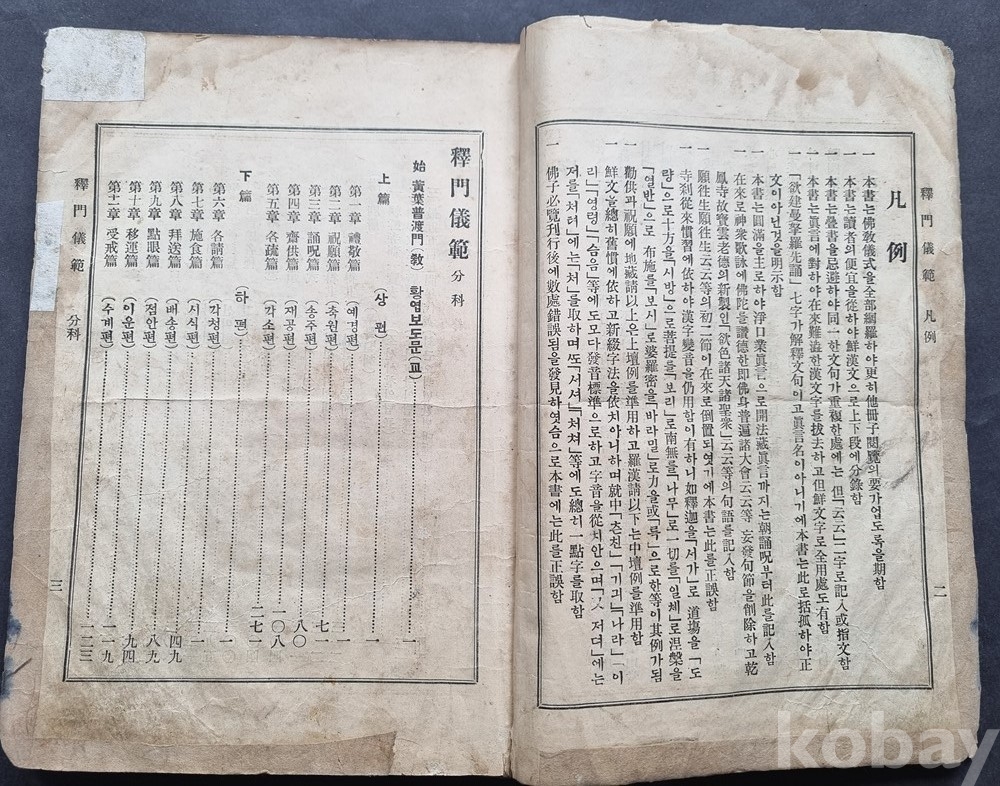 釋門儀範 凡例
二
凡例
一 本書는佛教儀式을全部網羅하야更히他冊子閱覽의要가업도록을期함
一 本書는讀者의便宜을從하야鮮漢文으로上下段에分錄함
一 本書는疊書을忌避하야同一한文句가重複한處에는 但「云云」二字로記入或指文함
一 本書는眞言에對하야在來難澁한漢文字를拔去하고但鮮文字로全用處도有함
一 「欲建曼拏羅先誦」七字가解釋文句이고眞言名이아니기에本書는此로括孤하야正
文이아닌것을明示함
一 本書는圓滿을主로하야淨口業眞言으로開法藏眞言까지는朝誦呪부터此를記入함
一 在來로神衆歌詠에佛陀를讚德한即佛身普遍諸大會云云等 妄發句節을削除하고乾
鳳寺故寶雲老德의新製인「欲色諸天諸聖衆」云云等의句語를記入함
一 願往生願往生云云等의初二節이在來로倒置되엿기에本書는此를正誤함
一 寺刹從來慣習에依하야漢字變音을仍用함이有하니如釋迦을「서가」로 道場을「도
량」으로十方을「시방」으로菩提를「보리」로南無를「나무」로一切를「일체」로涅槃을
「열반」으로 布施를「보시」로婆羅密을「바라밀」로力을或「륵」으로한等이其例가됨
一 勸供과祝願에地藏請以上은上壇例를準用하고羅漢請以下는中壇例를準用함
一 鮮文을總히舊慣에依하고新綴字法을依치아니하며就中「츠친」「기긔」「나라」「이
리」「영령」「습슴」等에도모다發音標準으로하고字音을從치안으며「ㅅ저뎌」에는
저를「처텨」에는「처」를取하며또「서셔」「처쳐」等에도總히一點字를取함
一 佛子必覽刊行後에數處錯誤됨을發見하엿슴으로本書에는此를正誤함
釋門儀範 分科
始 黃葉普渡門(敎) 황엽보도문(교) 一
上篇 (상편) 一
第一章 禮敬篇 (예경편) 一
第二章 祝願篇 (축원편) 一
第三章 誦呪篇 (송주편) 七一
第四章 齋供篇 (재공편) 八〇
第五章 各疏篇 (각소편) 一〇八
下篇 (하편) 一
第六章 各請篇 (각청편) 一
第七章 施食篇 (시식편)
第八章 拜送篇 (배송편) 四九
第九章 點眼篇 (점안편) 八九
第十章 移運篇 (이운편) 九四
第十一章 受戒篇 (수계편)
釋門儀範 分科
三
kobay